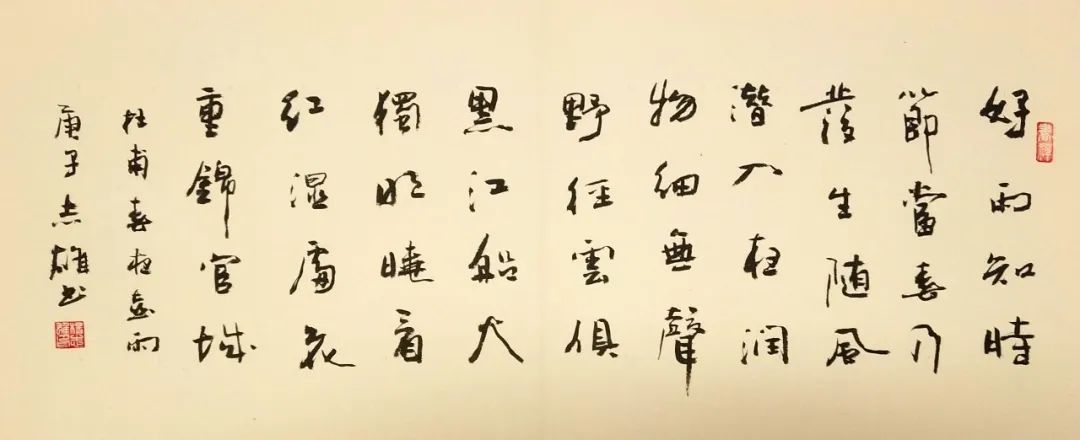 好雨知時
節當春乃
發生随風
潛入夜润
物細無聲
野徑雲俱
黑江船火
獨明曉看
红湿處花
重錦官城
杜甫春夜喜雨
庚子志雄书